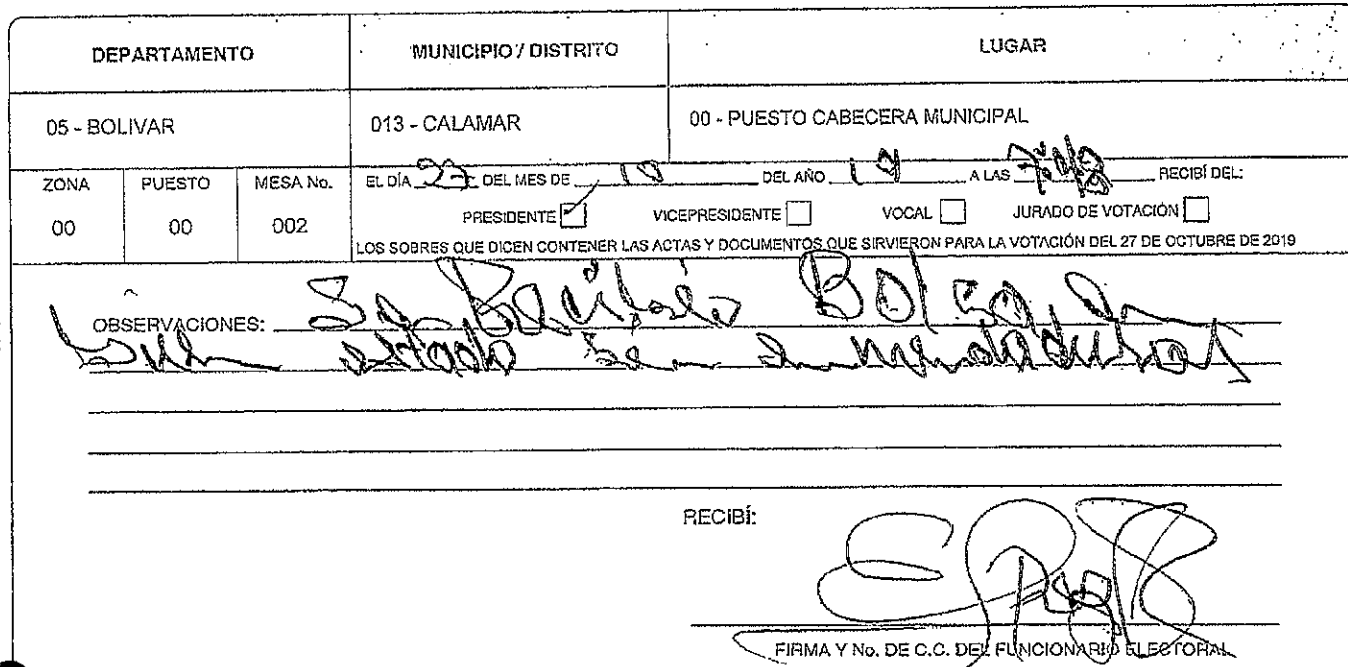 DEPARTAMENTO MUNICIPIO / DISTRITO LUGAR
05 - BOLIVAR 013 - CALAMAR 00 - PUESTO CABECERA MUNICIPAL
ZONA PUESTO MESA No. EL DÍA 27 DEL MES DE 10 DEL AÑO 19 A LAS RECIBÍ DEL:
00 00 002 PRESIDENTE VICEPRESIDENTE VOCAL JURADO DE VOTACIÓN
LOS SOBRES QUE DICEN CONTENER LAS ACTAS Y DOCUMENTOS QUE SIRVIERON PARA LA VOTACIÓN DEL 27 DE OCTUBRE DE 2019
OBSERVACIONES: Se Recibió Bolsa en
Buen estado sin enmendaduras
RECIBÍ:
FIRMA Y No. DE C.C. DEL FUNCIONARIO ELECTORAL